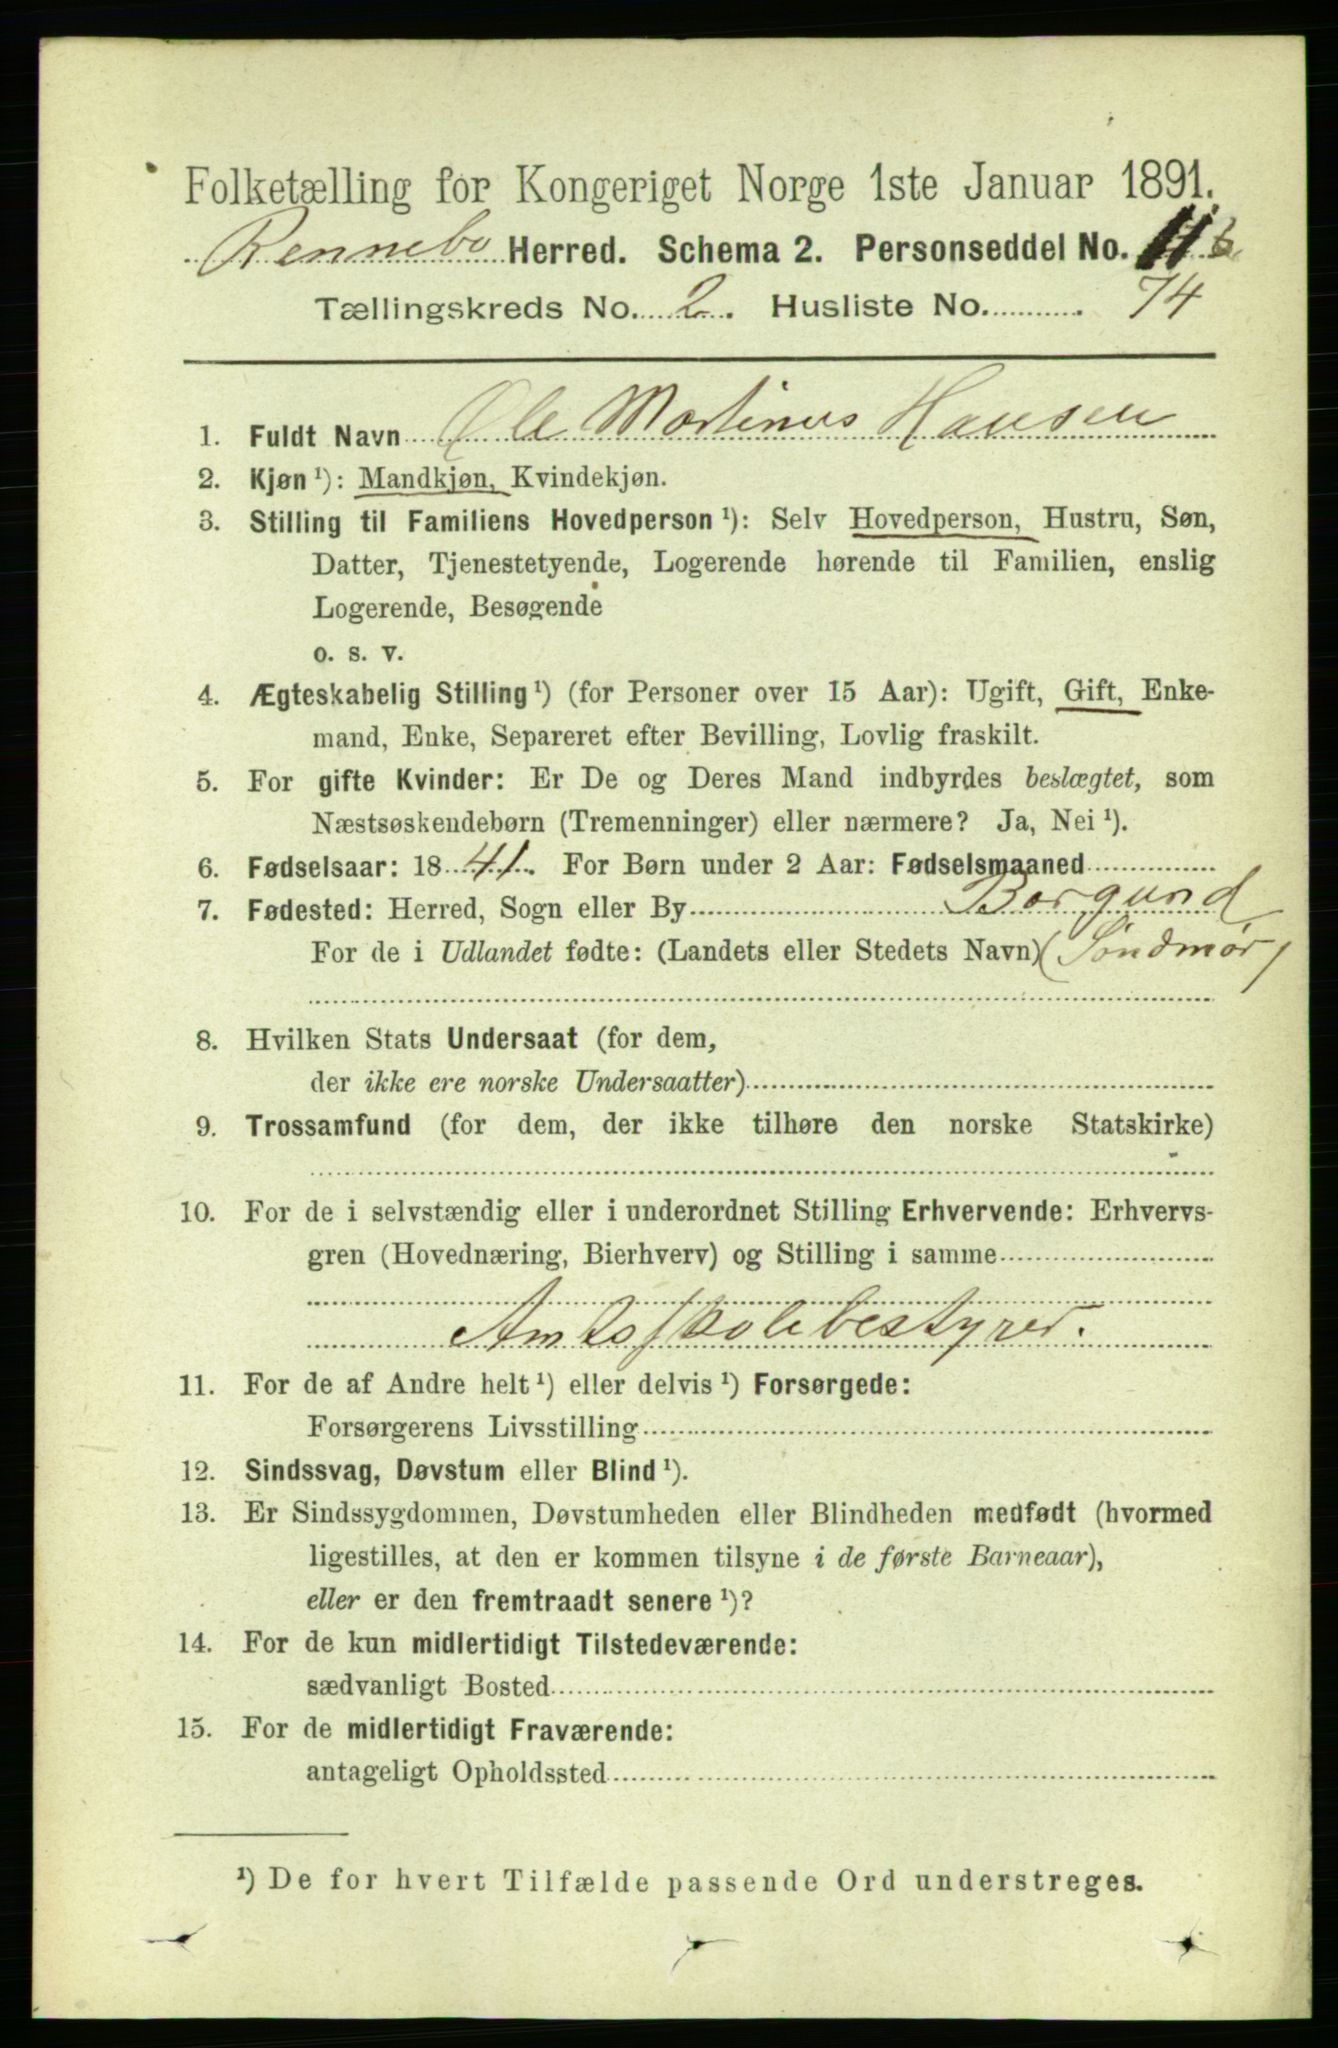 Folketælling for Kongeriget Norge 1ste Januar 1891.
Rennebo Herred. Schema 2. Personseddel No. 11
Tællingskreds No. 2. Husliste No. 74
1. Fuldt Navn Ole Martinus Hansen
2. Kjøn¹): Mandkjøn, Kvindekjøn.
3. Stilling til Familiens Hovedperson¹): Selv Hovedperson, Hustru, Søn,
Datter, Tjenestetyende, Logerende hørende til Familien, enslig
Logerende, Besøgende
o. s. v.
4. Ægteskabelig Stilling¹) (for Personer over 15 Aar): Ugift, Gift, Enke-
mand, Enke, Separeret efter Bevilling, Lovlig fraskilt.
5. For gifte Kvinder: Er De og Deres Mand indbyrdes beslægtet, som
Næstsøskendebørn (Tremenninger) eller nærmere? Ja, Nei¹).
6. Fødselsaar: 1841. For Børn under 2 Aar: Fødselsmaaned
7. Fødested: Herred, Sogn eller By Borgund
For de i Udlandet fødte: (Landets eller Stedets Navn) (Søndmør)
8. Hvilken Stats Undersaat (for dem,
der ikke ere norske Undersaatter)
9. Trossamfund (for dem, der ikke tilhøre den norske Statskirke)
10. For de i selvstændig eller i underordnet Stilling Erhvervende: Erhvervs-
gren (Hovednæring, Bierhverv) og Stilling i samme
Amtsskolebestyrer.
11. For de af Andre helt¹) eller delvis¹) Forsørgede:
Forsørgerens Livsstilling
12. Sindssvag, Døvstum eller Blind¹).
13. Er Sindssygdommen, Døvstumheden eller Blindheden medfødt (hvormed
ligestilles, at den er kommen tilsyne i de første Barneaar),
eller er den fremtraadt senere¹)?
14. For de kun midlertidigt Tilstedeværende:
sædvanligt Bosted
15. For de midlertidigt Fraværende:
antageligt Opholdssted
¹) De for hvert Tilfælde passende Ord understreges.